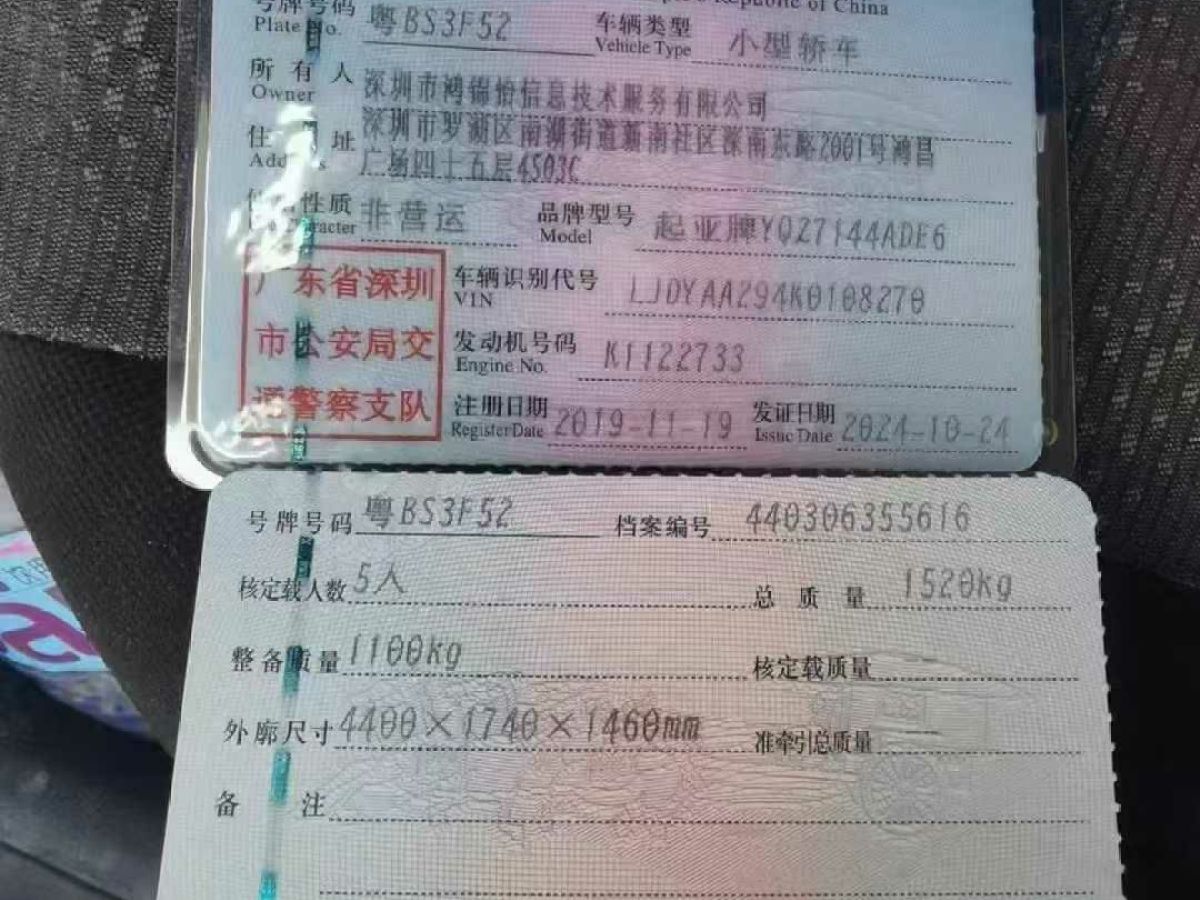 Republic of China
号牌号码 粤BS3F52 车辆类型 小型轿车
Plate No. Vehicle Type
所有人 深圳市鸿锦怡信息技术服务有限公司
Owner
住址 深圳市罗湖区南湖街道新南社区深南东路2001号鸿昌
Address 广场四十五层4503C
性质 非营运 品牌型号 起亚牌YQZ7144ADE6
Character Model
广东省深圳 车辆识别代号 LJDYAA294K0108270
VIN
市公安局交 发动机号码 K1122733
Engine No.
通警察支队 注册日期 2019-11-19 发证日期 2024-10-24
Register Date Issue Date
号牌号码 粤BS3F52 档案编号 440306355616
核定载人数 5人 总质量 1520kg
整备质量 1100kg 核定载质量
外廓尺寸 4400×1740×1460mm 准牵引总质量 --
备注